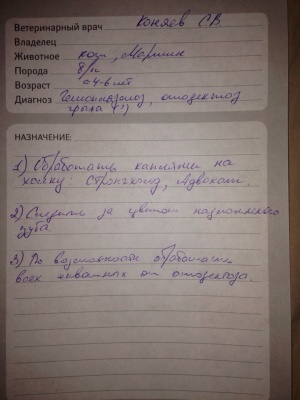 Ветеринарный врач Коняев СВ
Владелец
Животное кот, Мартин
Порода б/п
Возраст ~4-6 лет
Диагноз Гемоплазмоз, отодектоз
грыжа (?)
НАЗНАЧЕНИЕ:
1) Обработать каплями на
холку: Стронгхолд, Адвокат.
2) Следить за цветом
зуба
3) По возможности обработать
всех животных от отодектоза.